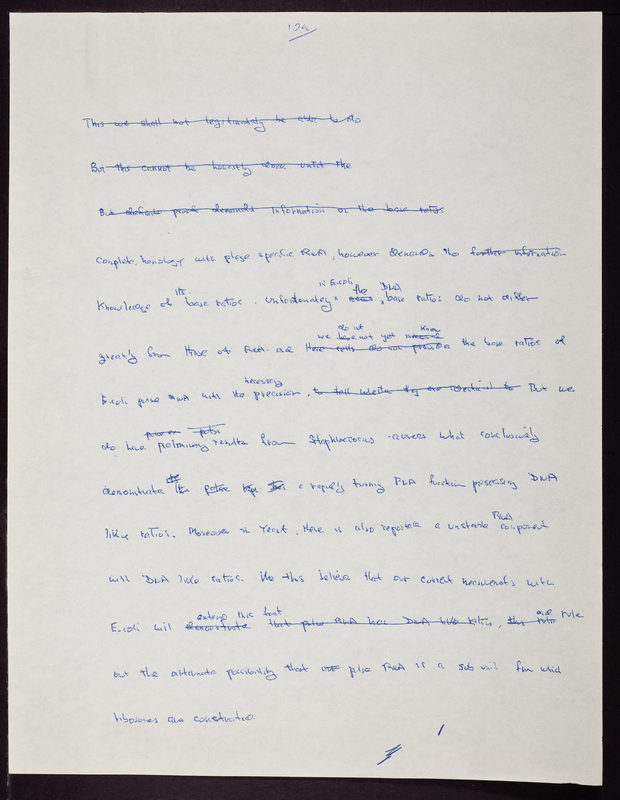 12a
This we shall not legitimately be able to do
But this cannot be honestly done until the
But definite proof demands information on the base ratios
complete homology with phage specific RNA, however demands the further information
Knowledge of its base ratios. Unfortunately in E.coli the DNA base ratios do not differ
greatly from those of RNA and we do not have not yet know the base ratios of
E.coli pulse RNA with the necessary precision, to tell whether they are identical to But we
do have preliminary results from Staphlococcus aureus what conclusively
demonstrate the pulse a rapidly turning RNA fraction possessing DNA
like ratios. Moreover in Yeast, there is also reported a unstable RNA component
with DNA like ratios. We thus believe that our current measurements with
E.coli will demonstrate extend this fact that pulse RNA has DNA like ratios, this ratio and rule
out the alternate possibility that pulse RNA is a sub unit from which
ribosomes are constructed.